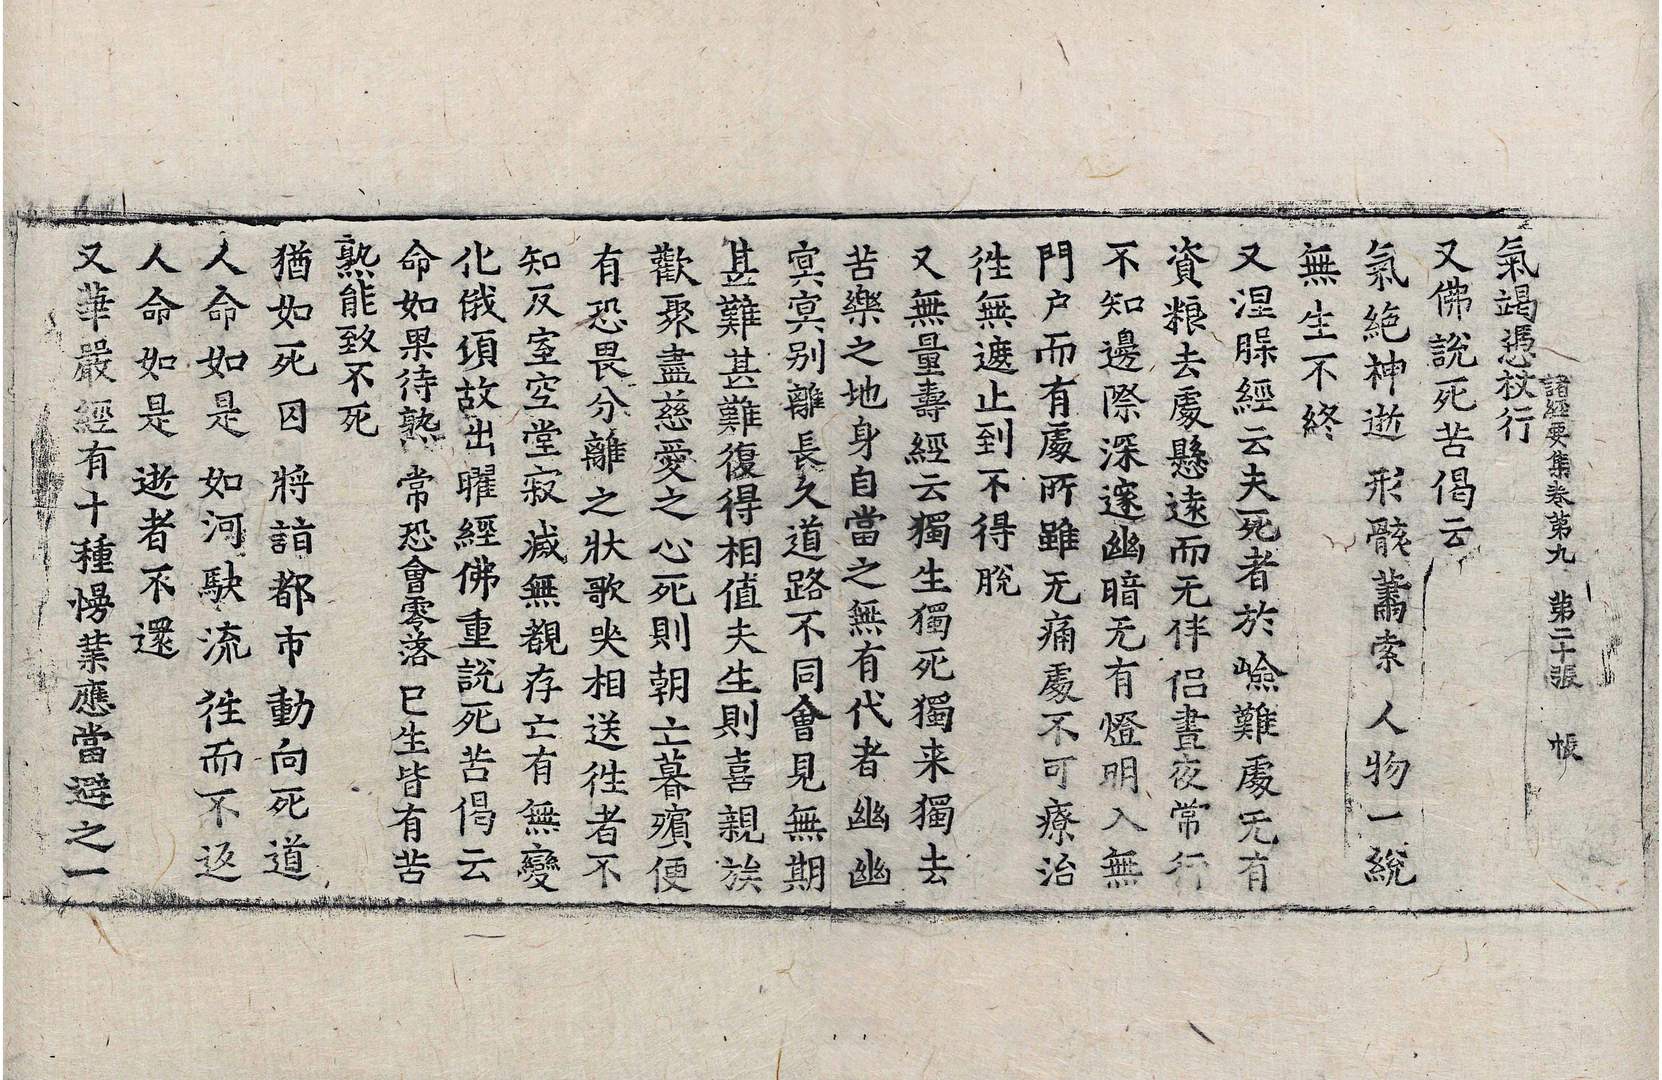 諸經要集卷第九 第二十張 帳
氣竭憑杖行
又佛說死苦偈云
氣絕神逝 形骸蕭索 人物一統
無生不終
又涅槃經云夫死者於嶮難處无有
資粮去處懸遠而无伴侣晝夜常行
不知邊際深邃幽暗无有燈明入無
門户而有處所雖无痛處不可療治
徃無遮止到不得脫
又無量壽經云獨生獨死獨来獨去
苦樂之地身自當之無有代者幽幽
㝠㝠别離長久道路不同會見無期
甚難甚難復得相值夫生則喜親族
歡聚盡慈愛之心死則朝亡暮殯便
有恐畏分離之狀歌哭相送徃者不
知反室空堂寂滅無覩存亡有無變
化俄頃故出曜經佛重說死苦偈云
命如果待熟 常恐會零落 已生皆有苦
孰能致不死
猶如死囚 將詣都市 動向死道
人命如是 如河駃流 徃而不返
人命如是 逝者不還
又華嚴經有十種慢業應當避之一